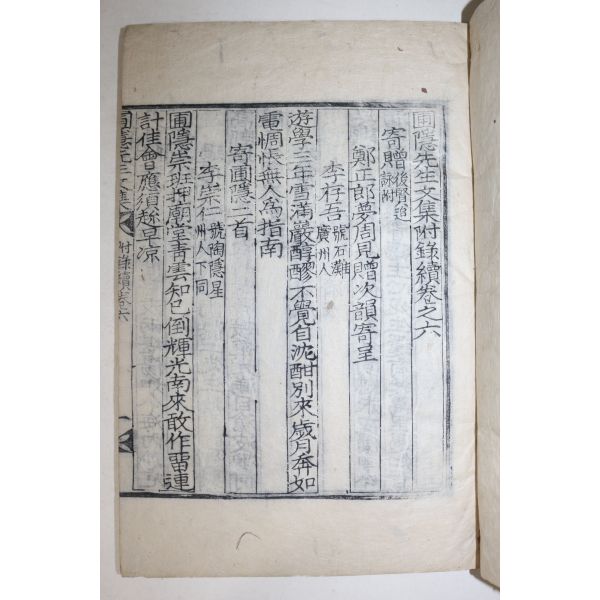 圃隱先生文集附錄續卷之六
寄贈 後賢追詠附
鄭正郎夢周見贈次韻寄呈
李存吾 號石灘廣州人
遊學三年雪滿巖醇醪不覺自沈酣別來歲月奔如
電惆悵無人爲指南
寄圃隱二首
李崇仁 號陶隱星州人下同
圃隱崇班押廟堂靑雲知已倒輝光南來敢作畱連
計佳會應須趂早凉
圃隱先生文集 附錄續卷六